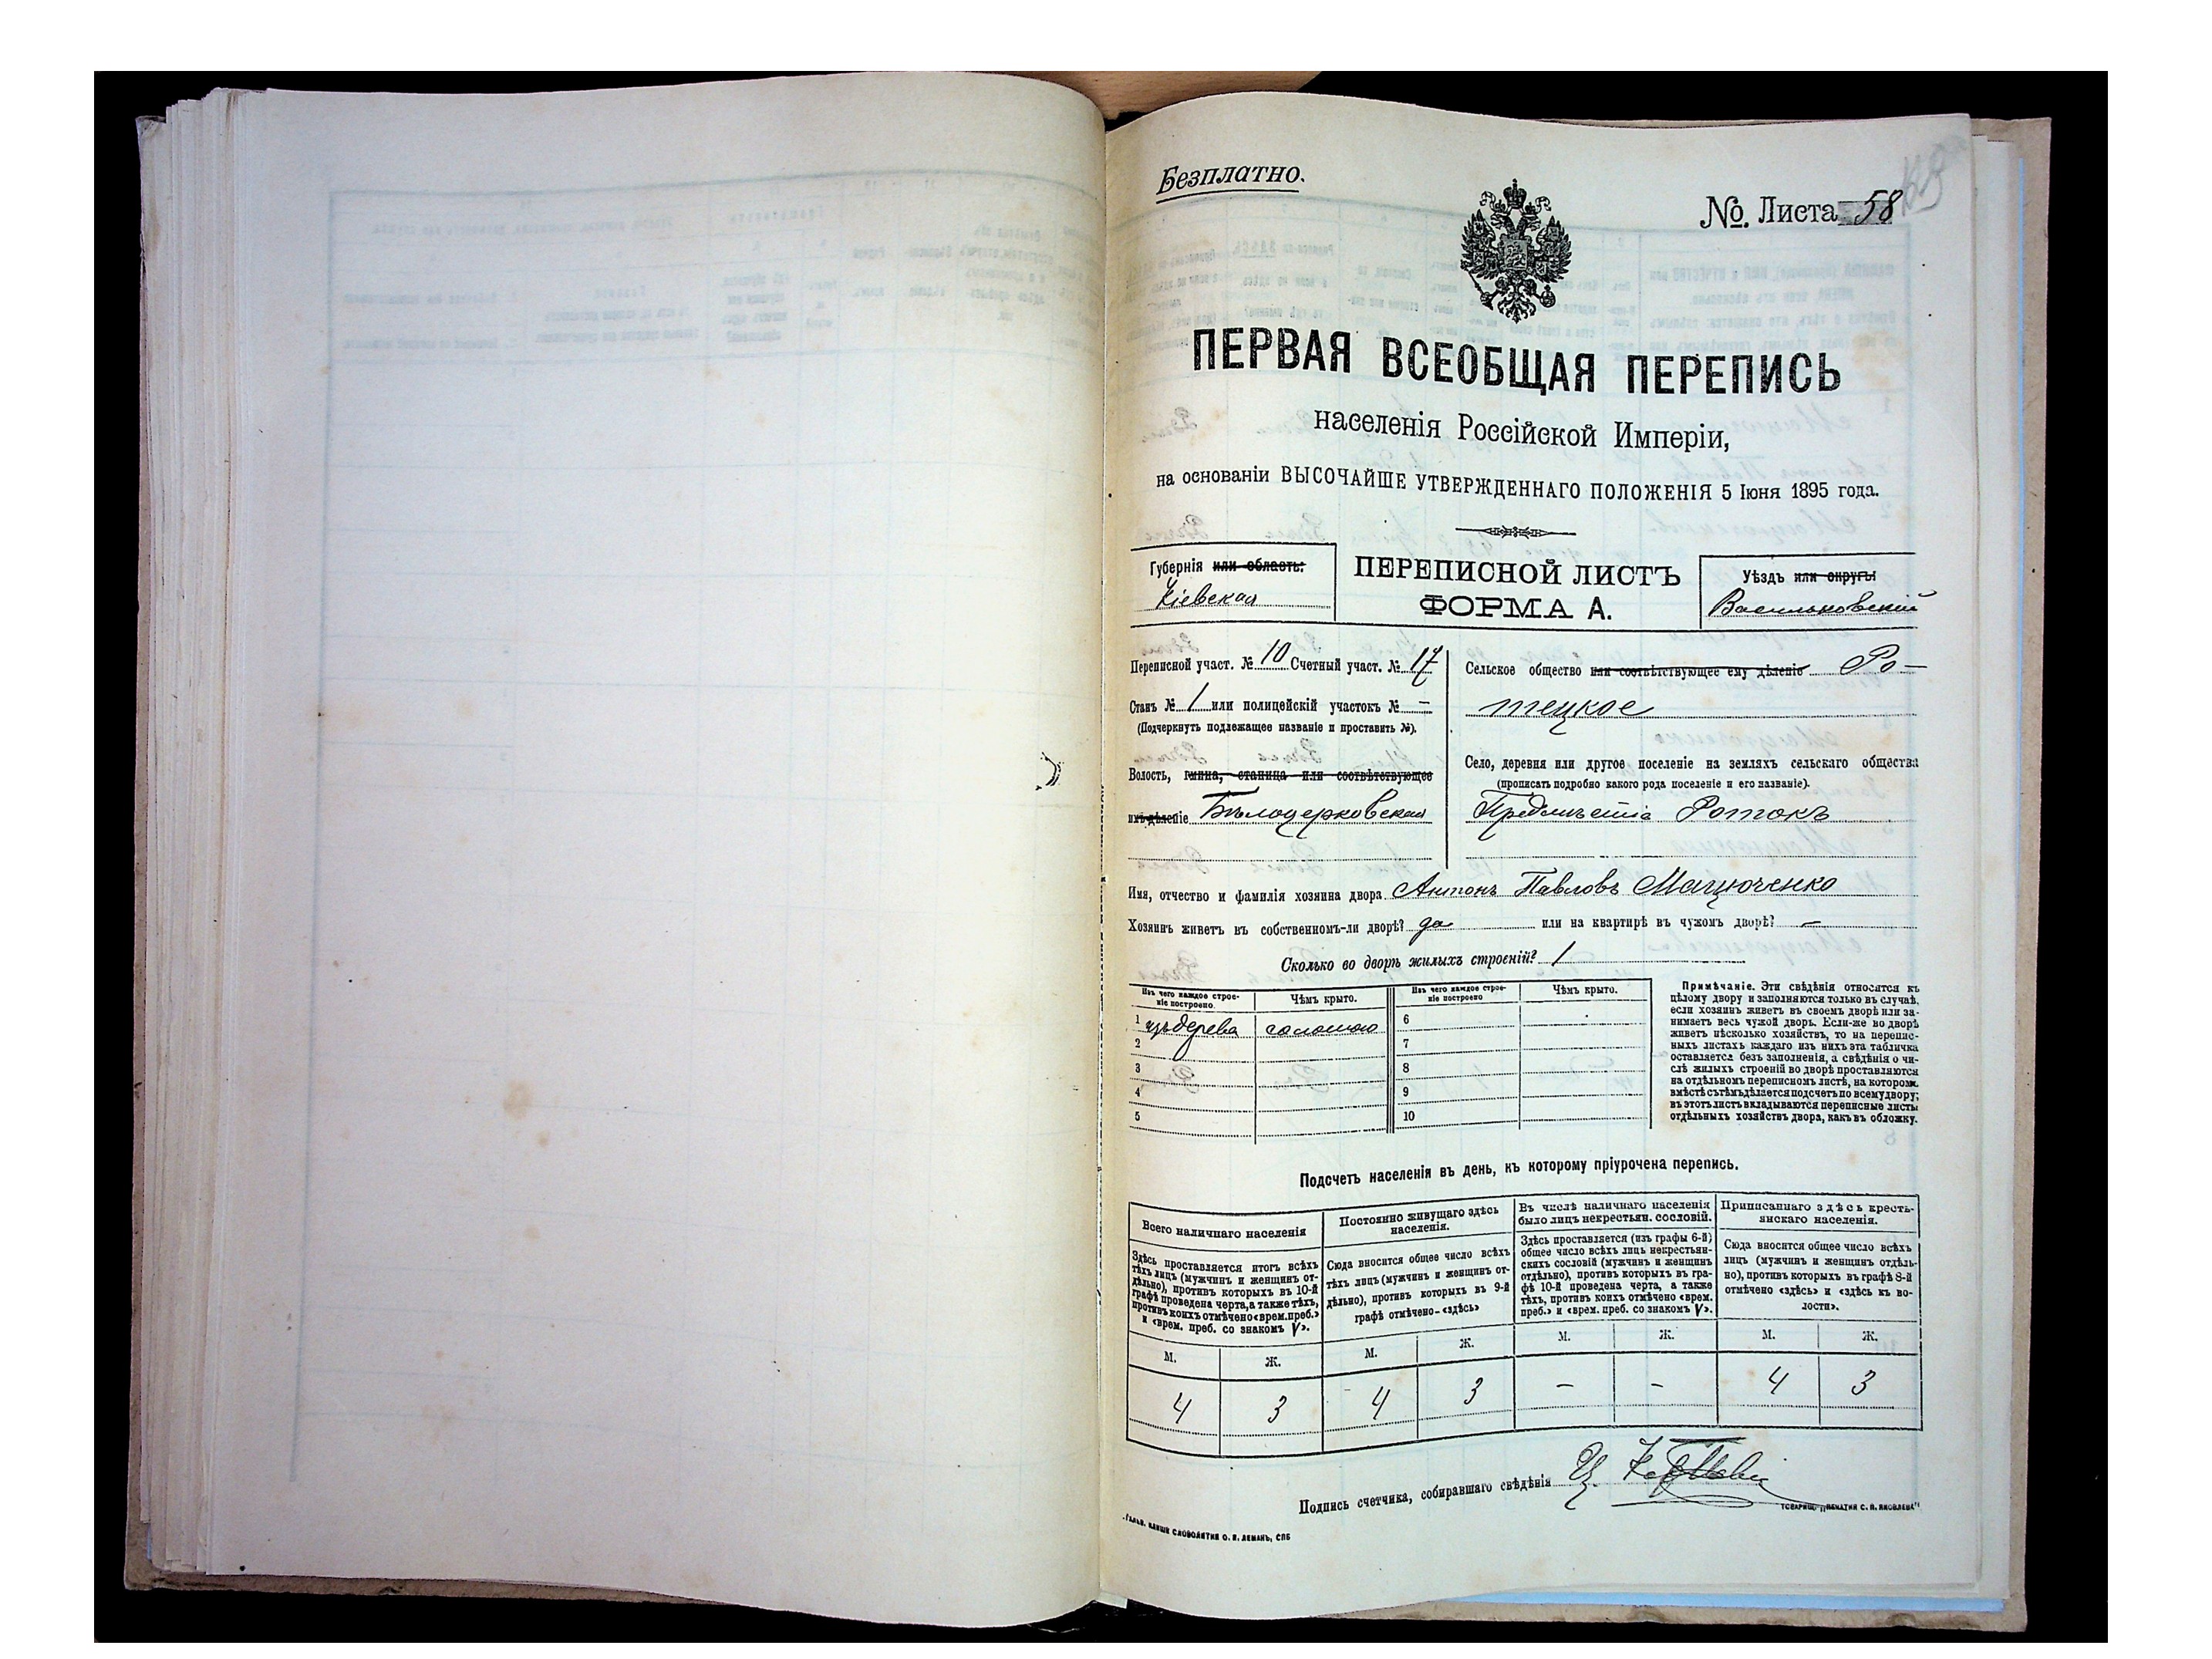 Безплатно.
№ Листа 58
ПЕРВАЯ ВСЕОБЩАЯ ПЕРЕПИСЬ
населенія Россійской Имперіи,
на основаніи ВЫСОЧАЙШЕ УТВЕРЖДЕННАГО ПОЛОЖЕНІЯ 5 Іюня 1895 года.
Губернія или область:
Кіевская
ПЕРЕПИСНОЙ ЛИСТЪ
ФОРМА А.
Уѣздъ или округъ
Васильковскій
Переписной участ. № 10 Счетный участ. № 17
Станъ № 1 или полицейскій участокъ № —
(Подчеркнуть подлежащее названіе и проставить №).
Волость, гмина, станица или соотвѣтствующее
имъ дѣленіе Бѣлоцерковская
Сельское общество или соотвѣтствующее ему дѣленіе Ро-
тецкое
Село, деревня или другое поселеніе на земляхъ сельскаго общества
(прописать подробно какого рода поселеніе и его названіе).
Предмѣстіа Ротокъ
Имя, отчество и фамилія хозяина двора Антонъ Павловъ Мацюченко
Хозяинъ живетъ въ собственномъ-ли дворѣ? да или на квартирѣ въ чужомъ дворѣ? —
Сколько во дворѣ жилыхъ строеній? 1
Изъ чего каждое строе-
ніе построено.
Чѣмъ крыто.
Изъ чего каждое строе-
ніе построено
Чѣмъ крыто.
1 изъ дерева соломою 6
2 7
3 8
4 9
5 10
Примѣчаніе. Эти свѣдѣнія относятся къ
цѣлому двору и заполняются только въ случаѣ,
если хозяинъ живетъ въ своемъ дворѣ или за-
нимаетъ весь чужой дворъ. Если-же во дворѣ
живетъ нѣсколько хозяйствъ, то на перепис-
ныхъ листахъ каждаго изъ нихъ эта табличка
оставляется безъ заполненія, а свѣдѣнія о чи-
слѣ жилыхъ строеній во дворѣ проставляются
на отдѣльномъ переписномъ листѣ, на которомъ
вмѣстѣ съ тѣмъ дѣлается подсчетъ по всему двору;
въ этотъ листъ вкладываются переписные листы
отдѣльныхъ хозяйствъ двора, какъ въ обложку.
Подсчетъ населенія въ день, къ которому пріурочена перепись.
Всего наличнаго населенія
Здѣсь проставляется итогъ всѣхъ
тѣхъ лицъ (мужчинъ и женщинъ от-
дѣльно), противъ которыхъ въ 10-й
графѣ проведена черта, а также тѣхъ,
противъ коихъ отмѣчено «врем. преб.»
и «врем. преб. со знакомъ V».
Постоянно живущаго здѣсь
населенія.
Сюда вносится общее число всѣхъ
тѣхъ лицъ (мужчинъ и женщинъ от-
дѣльно), противъ которыхъ въ 9-й
графѣ отмѣчено- «здѣсь»
Въ числѣ наличнаго населенія
было лицъ некрестьян. сословій.
Здѣсь проставляется (изъ графы 6-й)
общее число всѣхъ лицъ некрестьян-
скихъ сословій (мужчинъ и женщинъ
отдѣльно), противъ которыхъ въ гра-
фѣ 10-й проведена черта, а также
тѣхъ, противъ коихъ отмѣчено «врем.
преб.» и «врем. преб. со знакомъ V».
Приписаннаго здѣсь кресть-
янскаго населенія.
Сюда вносится общее число всѣхъ
лицъ (мужчинъ и женщинъ отдѣль-
но), противъ которыхъ въ графѣ 8-й
отмѣчено «здѣсь» и «здѣсь къ во-
лости».
М. Ж. М. Ж. М. Ж. М. Ж.
4 3 4 3 — — 4 3
Подпись счетчика, собиравшаго свѣдѣнія
ТОВАРИЩ. „ПЕЧАТНЯ С. П. ЯКОВЛЕВА“
СЛОВОЛИТНИ О. И. ЛЕМАНЪ, СПБ